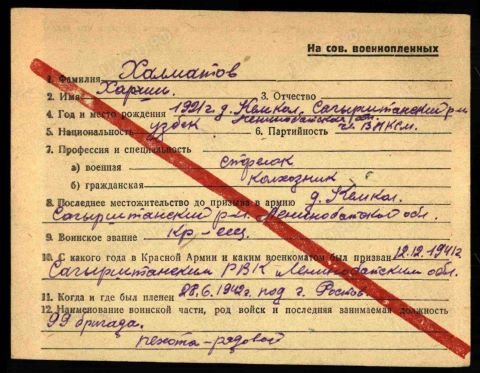 На сов. военнопленных
1. Фамилия Халматов
2. Имя Харим. 3. Отчество
4. Год и место рождения 1921г. д. Кемкол. Сагырштанский р-н
Ленинобадская
5. Национальность узбек 6. Партийность чл. ВЛКСМ.
7. Профессия и специальность
а) военная стрелок
б) гражданская колхозник
8. Последнее местожительство до призыва в армию д. Кемкол.
Сагырштанский р-н. Ленинобадской обл.
9. Воинское звание кр-леец
10. С какого года в Красной Армии и каким военкоматом был призван 12.12.1941г.
Сагырштанским РВК Ленинобадским обл.
11. Когда и где был пленен 28.6.1942г. под г. Ростов
12. Наименование воинской части, род войск и последняя занимаемая должность
99 бригада.
пехота-рядовой